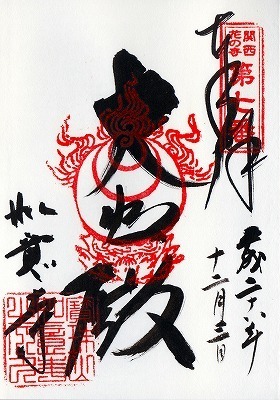 奉拝
関西
花の寺
第七番
大悲殿
平成二六年
十二月三日
如意寺